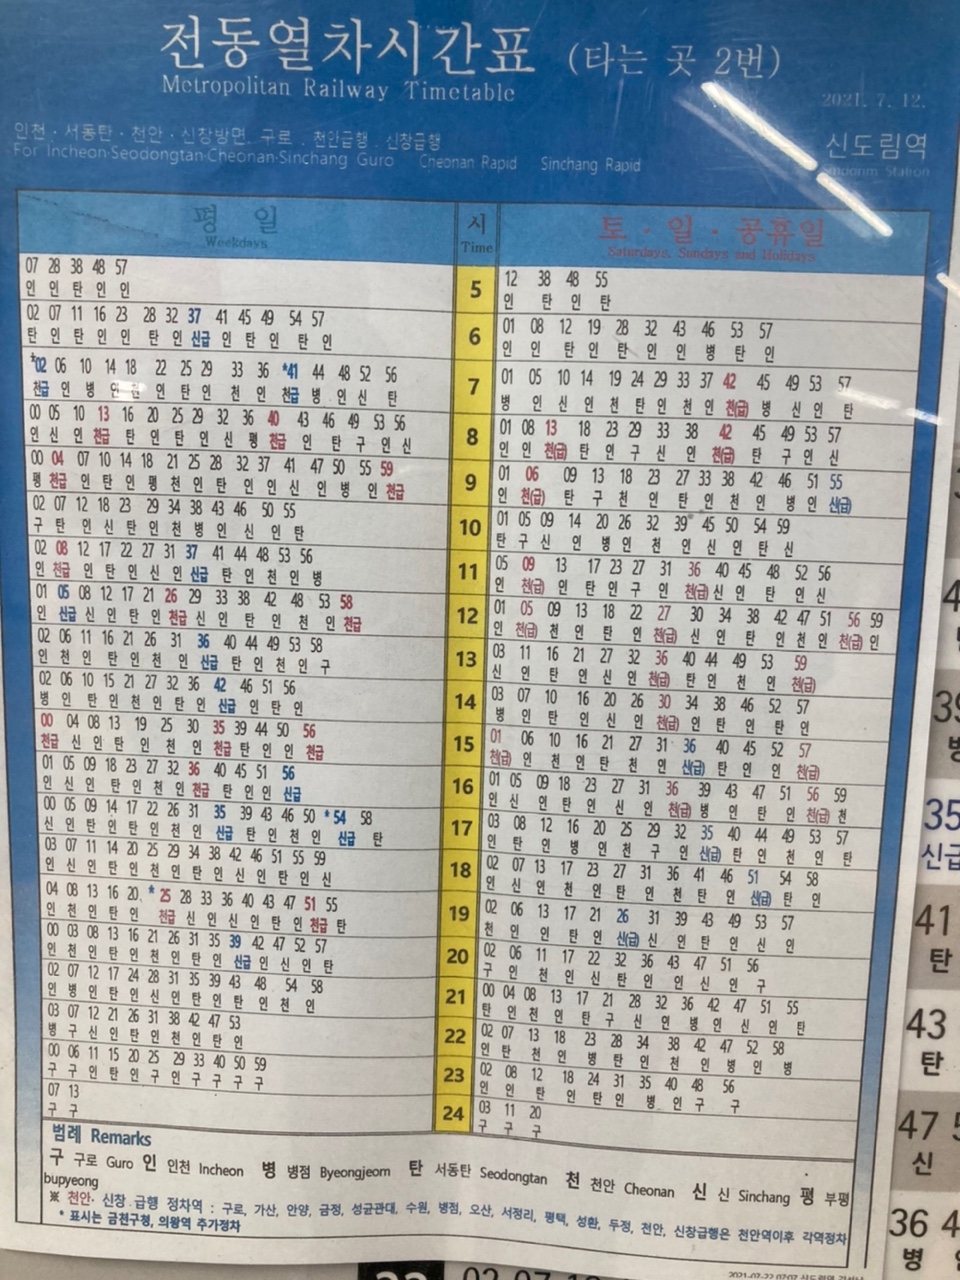 전동열차시간표 (타는 곳 2번)
Metropolitan Railway Timetable
2021. 7. 12.
인천 · 서동탄 · 천안 · 신창방면 구로 . 천안급행 신창급행
신도림역
For Incheon·Seodongtan·Cheonan·Sinchang Guro Cheonan Rapid Sinchang Rapid
Station
평 일 시 토 · 일 · 공휴일
Weekdays Time Saturdays, Sundays and Holidays
07 28 38 48 57 5 12 38 48 55
인 인 탄 인 인 인 탄 인 탄
02 07 11 16 23 28 32 37 41 45 49 54 57 6 01 08 12 19 28 32 43 46 53 57
탄 인 탄 인 인 탄 인 신급 인 탄 인 탄 인 인 인 탄 인 탄 인 인 병 탄 인
*02 06 10 14 18 22 25 29 33 36 *41 44 48 52 56 7 01 05 10 14 19 24 29 33 37 42 45 49 53 57
천급 인 병 인 인 인 탄 인 천 인 천급 병 인 신 탄 병 인 신 인 천 인 탄 천 인 천(급) 병 신 인 탄
00 05 10 13 16 20 25 29 32 36 40 43 46 49 53 56 8 01 08 13 18 23 29 33 38 42 45 49 53 57
인 신 인 천급 탄 인 탄 인 신 평 천급 인 탄 구 인 신 인 인 천(급) 탄 인 구 신 인 천(급) 탄 구 인 신
00 04 07 10 14 18 21 25 28 32 37 41 47 50 55 59 9 01 06 09 13 18 23 27 33 38 42 46 51 55
평 천급 인 탄 인 평 천 인 탄 인 인 신 인 병 인 천급 인 천(급) 탄 구 천 인 탄 인 천 인 병 인 신(급)
02 07 12 18 23 29 34 38 43 46 50 55 10 01 05 09 14 20 26 32 39 45 50 54 59
구 탄 인 신 탄 인 천 병 인 신 인 탄 탄 구 신 인 병 인 천 인 신 인 탄 신
02 08 12 17 22 27 31 37 41 44 48 53 56 11 05 09 13 17 23 27 31 36 40 45 48 52 56
인 천급 인 탄 인 신 인 신급 탄 인 천 인 병 인 천(급) 인 탄 인 구 인 천(급) 신 인 탄 인 신
01 05 08 12 17 21 26 29 33 38 42 48 53 58 12 01 05 09 13 18 22 27 30 34 38 42 47 51 56 59
인 신급 신 인 탄 인 천급 신 인 탄 인 천 인 천급 인 천(급) 천 인 탄 인 천(급) 신 인 탄 인 천 인 천(급) 인
02 06 11 16 21 26 31 36 40 44 49 53 58 13 03 11 16 21 27 32 36 40 44 49 53 59
인 천 인 탄 인 천 인 신급 탄 인 천 인 구 신 인 탄 인 신 인 천(급) 탄 인 천 인 천(급)
02 06 10 15 21 27 32 36 42 46 51 56 14 03 07 10 16 20 26 30 34 38 46 52 57
병 인 탄 인 천 인 탄 인 신급 인 탄 인 병 인 탄 인 신 인 천(급) 탄 인 탄 인 탄
00 04 08 13 19 25 30 35 39 44 50 56 15 01 06 10 16 21 27 31 36 40 45 52 57
천급 신 인 탄 인 천 인 천급 탄 인 인 천급 천(급) 인 천 인 탄 천 인 신(급) 탄 인 천 천(급)
01 05 09 18 23 27 32 36 40 45 51 56 16 01 05 09 18 23 27 31 36 39 43 47 51 56 59
인 신 인 탄 인 천 인 천급 탄 인 인 신급 인 신 인 탄 인 신 인 천(급) 병 인 탄 인 천(급) 천
00 05 09 14 17 22 26 31 35 39 43 46 50 *54 58 17 03 08 12 16 20 25 29 32 35 40 44 49 53 57
신 인 탄 인 탄 인 천 인 신급 탄 인 천 인 신급 탄 인 탄 인 병 인 천 구 인 신(급) 탄 인 천 인 탄
03 07 11 14 20 25 29 34 38 42 46 51 55 59 18 02 07 13 17 23 27 31 36 41 46 51 54 58
인 신 인 탄 인 천 인 탄 인 신 인 탄 인 신 인 신 인 천 인 탄 인 천 탄 인 신(급) 탄 인
04 08 13 16 20 *25 28 33 36 40 43 47 51 55 19 02 06 13 17 21 26 31 39 43 49 53 57
인 천 인 탄 인 천급 신 인 신 인 탄 인 천급 탄 천 인 인 탄 인 신(급) 신 인 탄 인 신 인
00 03 08 13 16 21 26 31 35 39 42 47 52 57 20 02 06 11 17 22 32 36 43 47 51 56
인 천 인 탄 인 천 인 탄 인 신급 인 신 인 탄 구 인 천 인 신 탄 인 인 신 인 구
02 07 12 17 24 28 31 35 39 43 48 54 58 21 00 04 08 13 17 21 28 32 36 42 47 51 55
인 병 인 탄 인 신 인 탄 인 탄 인 천 인 탄 인 천 인 탄 구 신 인 병 인 신 인 탄
03 07 12 21 26 31 38 42 47 53 22 02 07 13 18 23 28 34 38 42 47 52 58
병 구 신 인 탄 인 천 인 탄 인 인 탄 천 인 병 탄 인 천 인 병 인 병
00 06 11 15 20 25 29 33 40 50 59 23 02 08 12 18 24 31 35 40 48 56
구 구 인 탄 인 구 인 구 구 구 구 인 인 탄 인 탄 인 병 인 구 구
07 13 24 03 11 20
구 구 구 구 구
범례 Remarks
구 구로 Guro 인 인천 Incheon 병 병점 Byeongjeom 탄 서동탄 Seodongtan 천 천안 Cheonan 신 신 Sinchang 평 부평
bupyeong
※ 천안· 신창 급행 정차역 : 구로, 가산, 안양, 금정, 성균관대, 수원, 병점, 오산, 서정리, 평택, 성환, 두정, 천안, 신창급행은 천안역이후 각역정차
* 표시는 금천구청, 의왕역 추가정차
35
신급
41
탄
43
탄
47
신
36
병